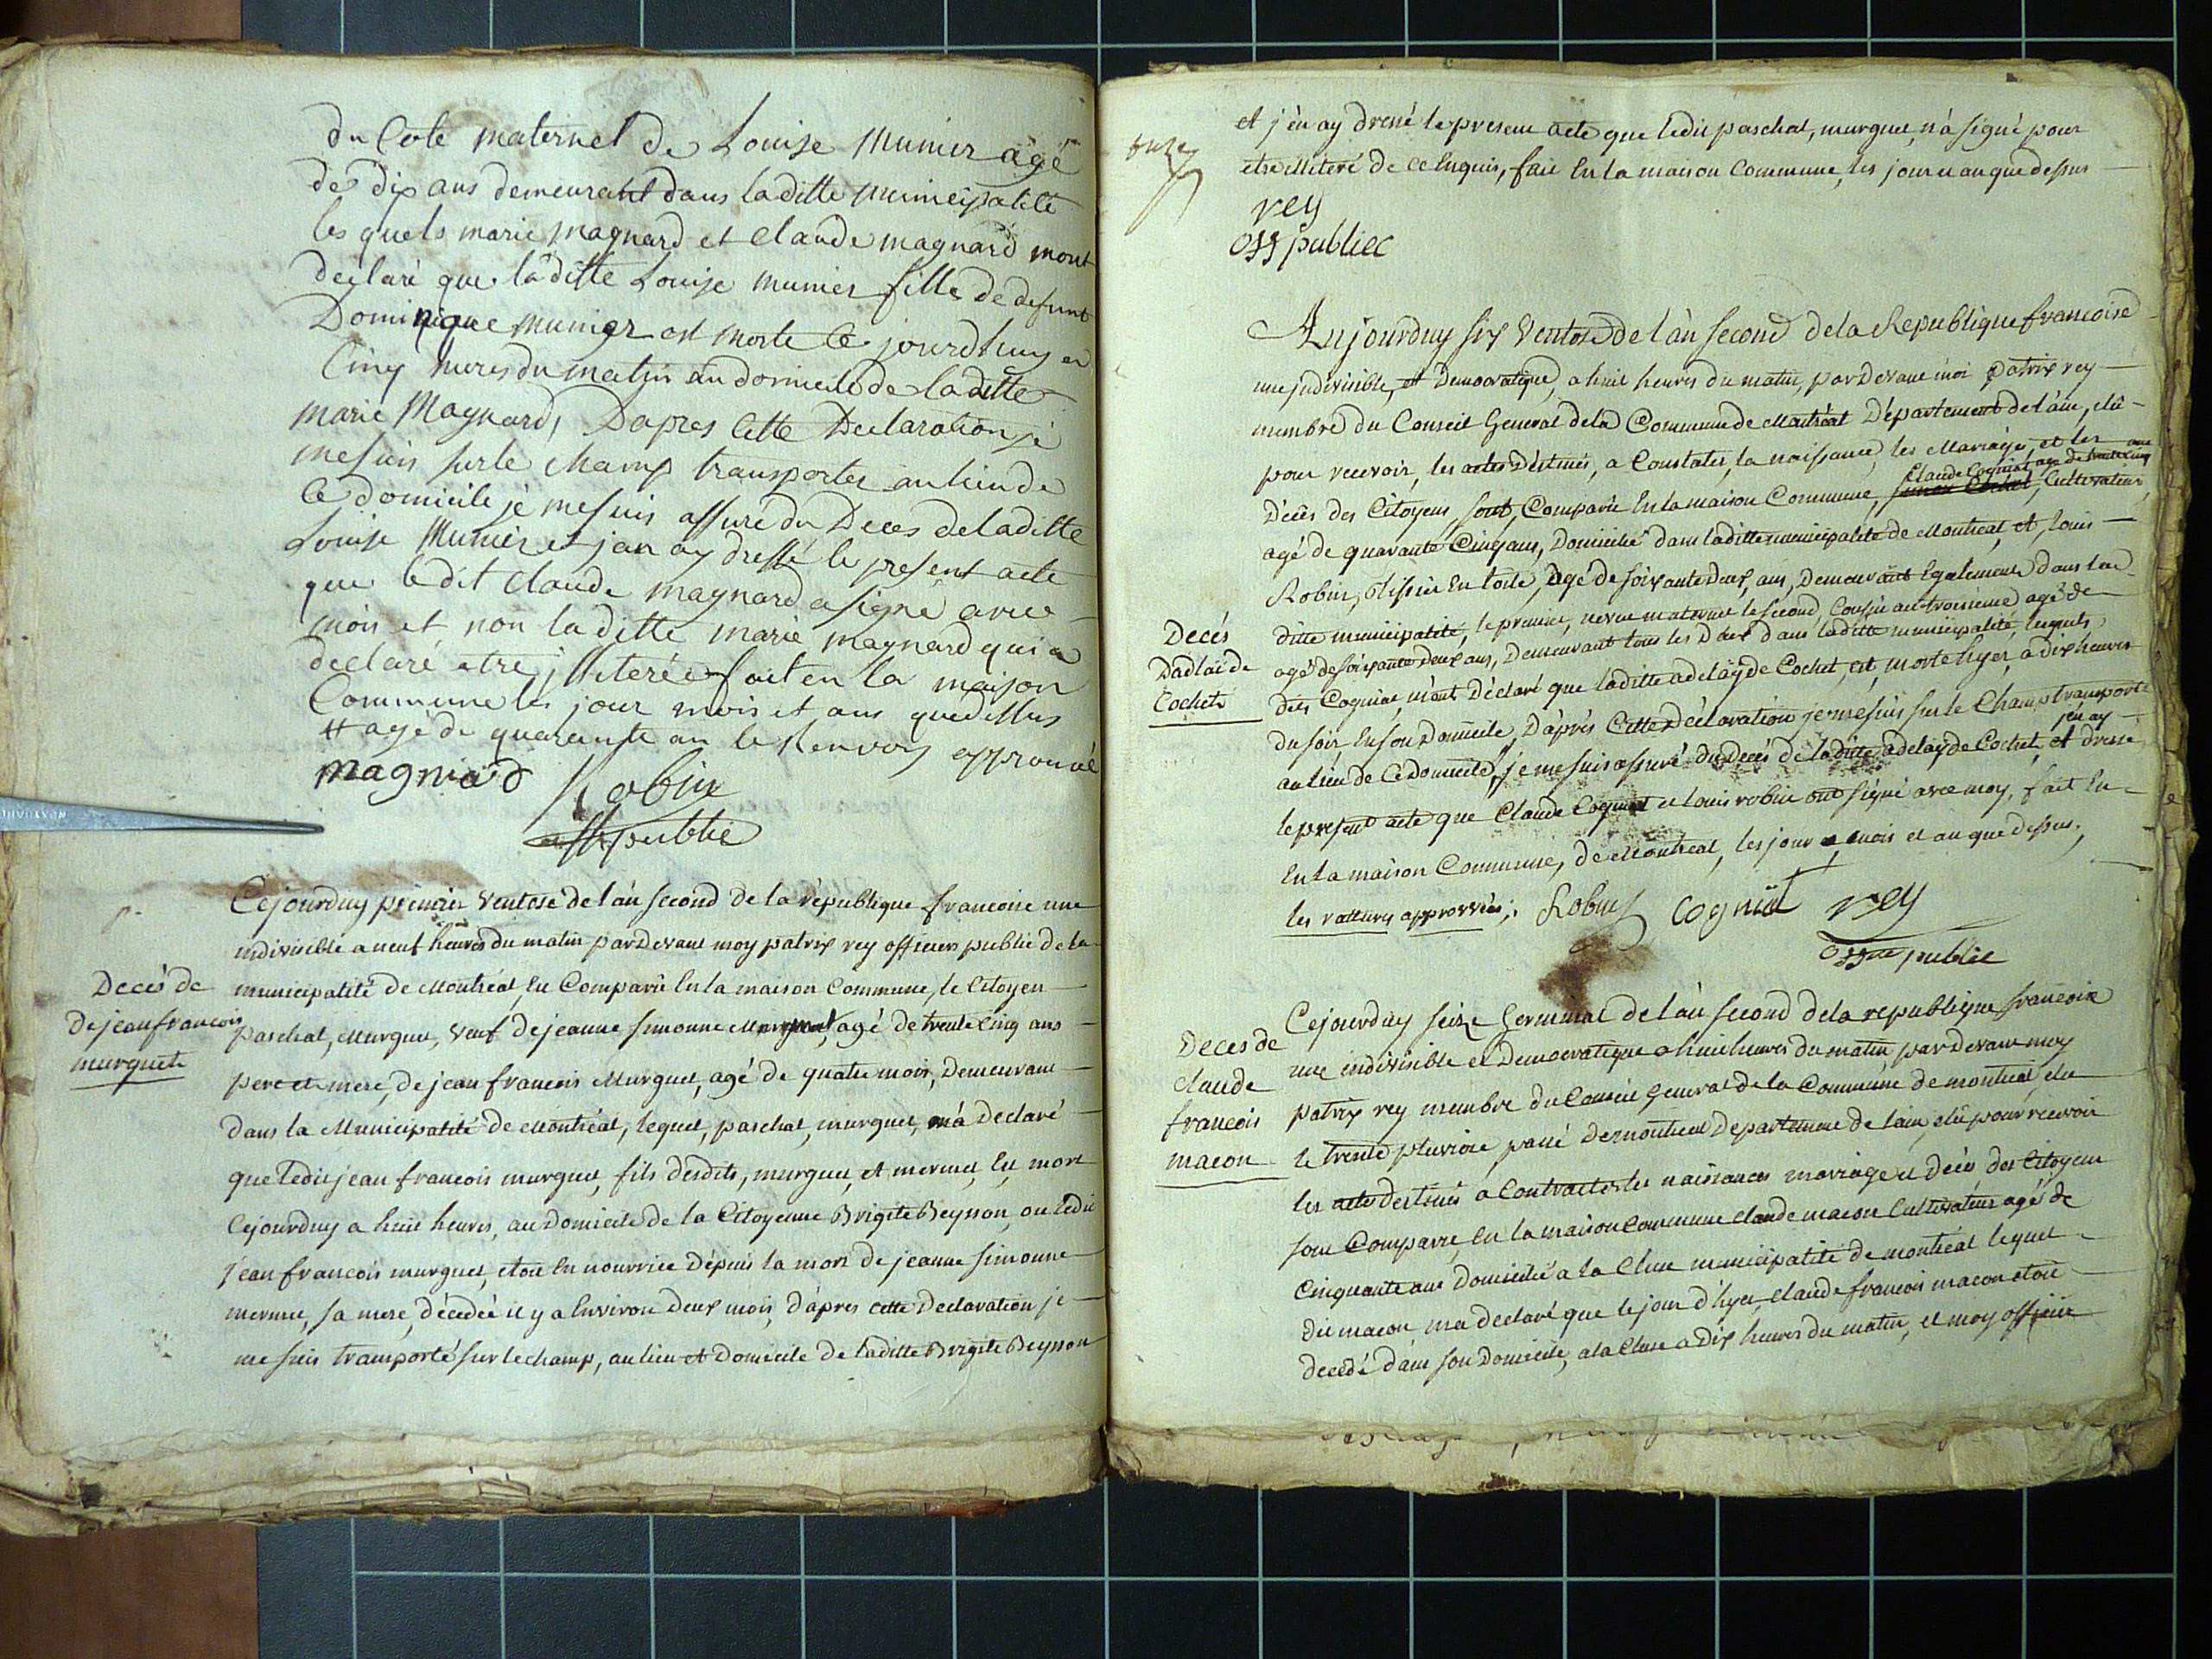 du Cote maternel de Louise Munier âgé
de dix ans demeurant dans laditte municipalité
les quels marie magnard et Claude magnard mont
declaré que laditte Louise munier fille de defunt
Dominique munier est morte Ce jourdhuy a
Cinq hures du matin au domicile de laditte
marie Magnard, Dapres Cette Declaration jè
mesuis surle champ transporter au lieu de
Ce domicile jè mesuis assuré du Deces deladitte
Louise Munier et jan ay dressé le present acte
que ledit Claude magnard a signe avec
mois et non laditte marie magnard qui a
declaré etre jlleterée fait en la maison
Commune les jour mois et ans quedessus
# agé de quarante an le Renvois approuvé
magniad Robin
offi publié
Cejourduy premier Ventose de l'àn second de la république francoise une
indivisible a neuf heures du matin pardevant moy patrix rey officier public de la
Decès de
De jean francois
murguete
municipalité de Montréal, Eu Comparû En la maison Commune, le Citoyen
paschal, Murguet, veuf de jeanne simonne agé de trente Cinq ans
pere et mere, de jean francois Murguet, agé de quatre mois, Demeurant
dans la Municipalité de Montréal, lequel, paschal, murguet, m'à Declaré
que ledit jean francois murguet, fils desdits, murguet, et mermet, Est mort
Cejourduy a huit heures, au Domicile de la Citoyenne Brigite Beysson, ou ledit
jean francois murguet, etoit En nourrice Dépuis la mort de jeanne simonne
mermet, sa mere, décedée il y a Environ deux mois, d'àpres cette Declaration je
me suis transporté sur lechamp, au lieu et Domicile de laditte Brigite Beysson
et j'èn ay dressé le present acte que ledit paschal, murguet, n'à signé pour
etre illiteré de ce Enquis, fait En la maison Commune, les jour et an que dessus
rey
off publicc
Aujourduy six Ventose de l'àn second dela Republique francoise
une jndivisible, et Democratique, a huit heures du matin, pardevant moi patrix rey
membre du Conseil General dela Commune de Montréal Département de l'ain, élû
pour recevoir, les actes Déstinés, a Constater, la naissance, les Mariages, et les
Claude Cogniat agé de trente Cinq ans
Décès des Citoyens, sont, Comparû En la maison Commune, Cultivateur,
agé de quarante Cinq ans, Domicilié dans laditte municipalité de Montreal, et, Louis
Robin, tissier En toile, agé de soixante Deux, ans, Demeurant Egalement dans lad
Decés
Dadlaïde
Cochete
ditte municipalité, le premier, neveu maternel le second, Cousin au troisieme agé de
agé de soixante deux ans, Demeurant tous les Deux Dans laditte municipalité, lequels,
dits Cogniat, m'ont Déclaré que laditte adelaÿde Cochet, est, morte hyer, a dix heures
du soir En son Domicile, D'àprès Cette Déclaration je me suis sur le Champ transporté
j'èn ay
au lieu de Ce Domicile, je me suis assuré du Decés de laditte adelaÿde Cochet, et dressé
le present acte que Claude Cogniat et Louis robin ont signé avec moy, fait En
En la maison Commune, de Montreal, les jour mois et an que dessus,
les ratturs approvvées; Robin Cogniat rey
off public
Decès de
claude
francois
macon
Cejourduy seize Germinal de l'àn second dela republique francoise
une indivisible et Democratique a huit heures du matin pardevant moy
patrix rey membre du Conseil general de la Commune de montreal, élu
le trente pluviose passé Demontreal Departement de l'ain, élû pour recevoir
les actes destinés a Contracter les naissances mariage et Décès des Citoyens
sont Comparu, En la maison commune claude macon Cultivateur agé de
Cinquante ans Domicilié a la Cluse municipalité de montréal lequel
dit macon ma declaré que le jour d'hyer claude francois macon etoit
decedé dans son Domicile, a la Cluse a Dix heures du matin, et moy officier